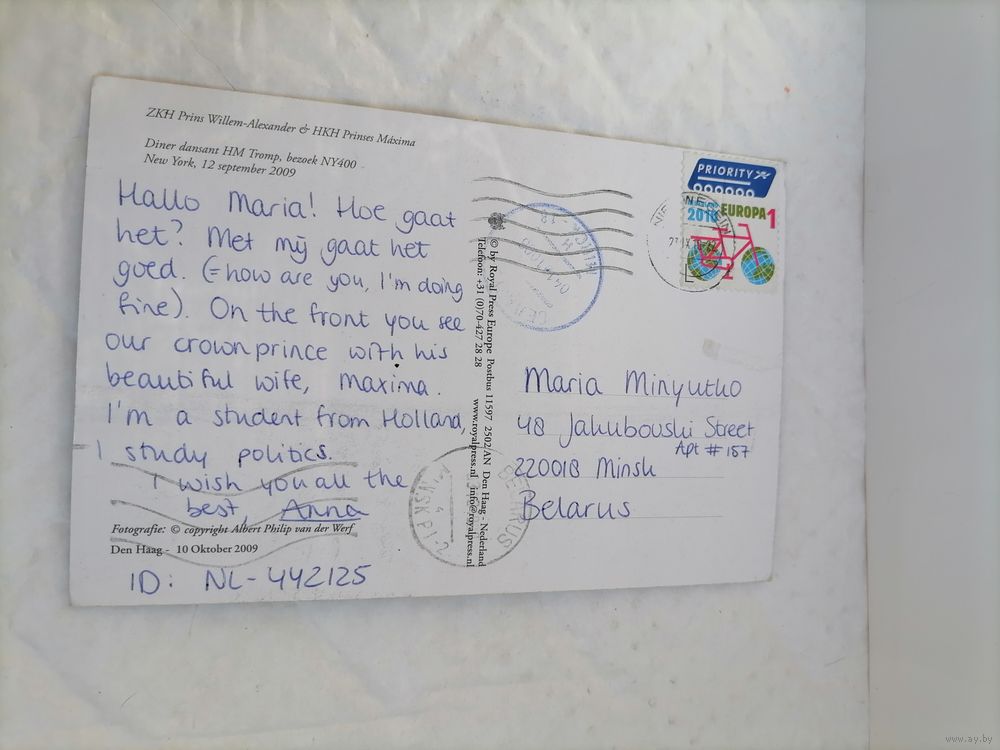 ZKH Prins Willem-Alexander & HKH Prinses Máxima
Diner dansant HM Tromp, bezoek NY400
New York, 12 september 2009
Hallo Maria! Hoe gaat
het? Met mij gaat het
goed. (=how are you, I'm doing
fine). On the front you see
our crownprince with his
beautiful wife, maxima.
I'm a student from Holland,
I study politics.
I wish you all the
best, Anna
Fotografie: © copyright Albert Philip van der Werf
Den Haag - 10 Oktober 2009
ID: NL-442125
© by Royal Press Europe Postbus 11597 2502/AN Den Haag - Nederland
Telefoon: +31 (0)70-427 28 28 www.royalpress.nl info@royalpress.nl
PRIORITY
2010 EUROPA 1
Maria Minyutko
48 Jakubovski Street
Apt # 157
220018 Minsk
Belarus
MINSK PI-2
BELARUS
www.ay.by